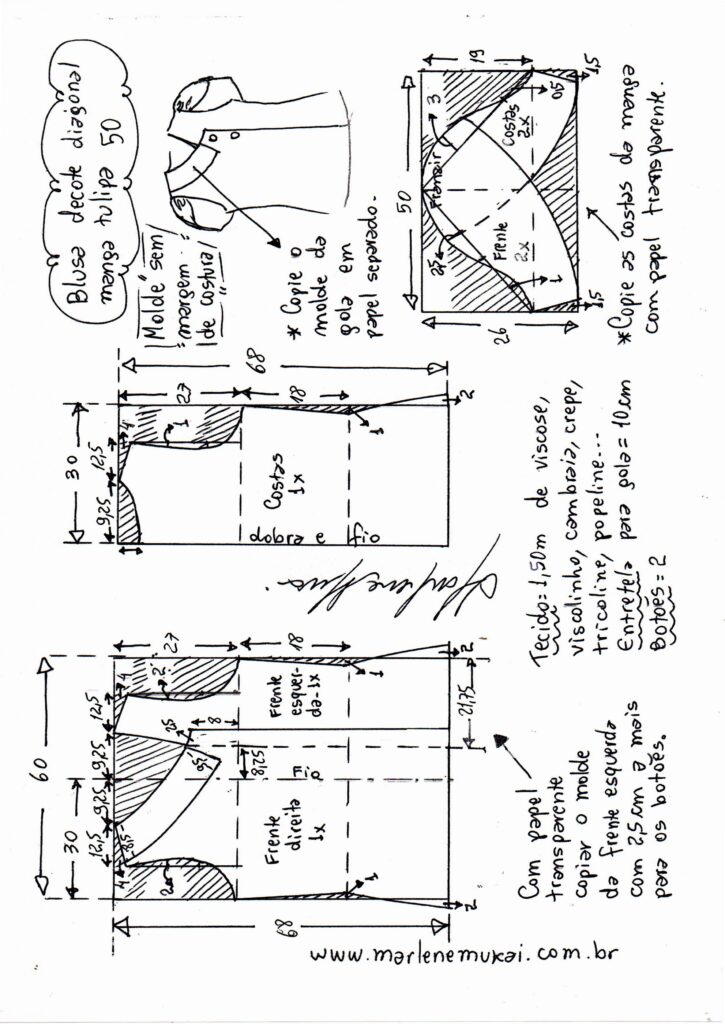 Blusa decote diagonal
manga tulipa 50
"Molde sem
margem
de costura"
* Copie o
molde da
gola em
papel separado.
60
30
12,5
9,25
9,25
12,5
4
8,5
2
25
8
2
4
27
18
9,5
8,25
Fio
Frente
direita
1x
Frente
esquer-
da-1x
1
1
2
2
21,75
68
30
9,25
12,5
4
1
1
27
18
68
Costas
1x
dobra e fio
1
2
50
19
26
3
Franzir
2,5
Frente
2x
Costas
2x
0,5
1
1,5
1,5
*Copie as costas da manga
com papel transparente.
Com papel
transparente
copiar o molde
da frente esquerda
com 2,5 cm a mais
para os botões.
Tecido=1,50m de viscose,
viscolinho, cambraia, crepe,
tricoline, popeline...
Entretela para gola=10cm
Botões=2
www.marlenemukai.com.br